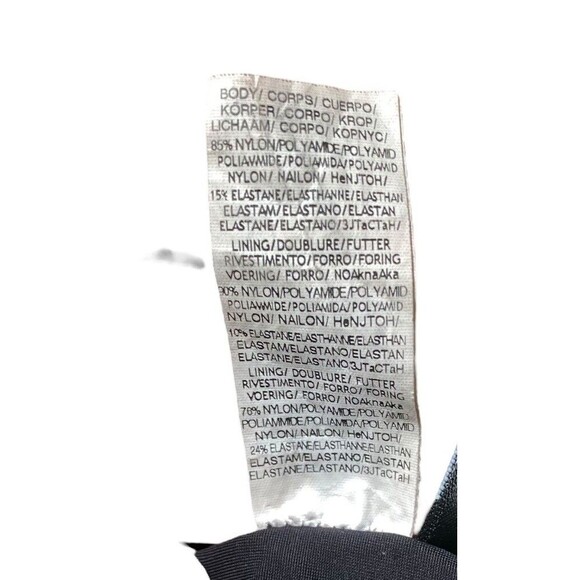 BODY/ CORPS/ CUERPO/
KÖRPER/ CORPO/ KROP/
LICHAAM/ CORPO/ KOPNYC/
85% NYLON/POLYAMIDE/POLYAMID
POLIAMMIDE/POLIAMIDA/POLYAMID
NYLON/ NAILON/ HeNJTOH/
15% ELASTANE/ELASTHANNE/ELASTHAN
ELASTAM/ELASTANO/ELASTAN
ELASTANE/ELASTANO/3JTaCTaH/
LINING/DOUBLURE/FUTTER
RIVESTIMENTO/FORRO/FORING
VOERING/ FORRO/ NOAknaAka
90% NYLON/POLYAMIDE/POLYAMID
POLIAMMIDE/POLIAMIDA/POLYAMID
NYLON/ NAILON/ HeNJTOH/
10% ELASTANE/ELASTHANNE/ELASTHAN
ELASTAM/ELASTANO/ELASTAN
ELASTANE/ELASTANO/3JTaCTaH
LINING/ DOUBLURE/ FUTTER
RIVESTIMENTO/ FORRO/ FORING
VOERING/ FORRO/ NOAknaAka
76% NYLON/POLYAMIDE/POLYAMID
POLIAMMIDE/POLIAMIDA/POLYAMID
NYLON/ NAILON/ HeNJTOH/
24% ELASTANE/ELASTHANNE/ELASTHAN
ELASTAM/ELASTANO/ELASTAN
ELASTANE/ELASTANO/3JTaCTaH